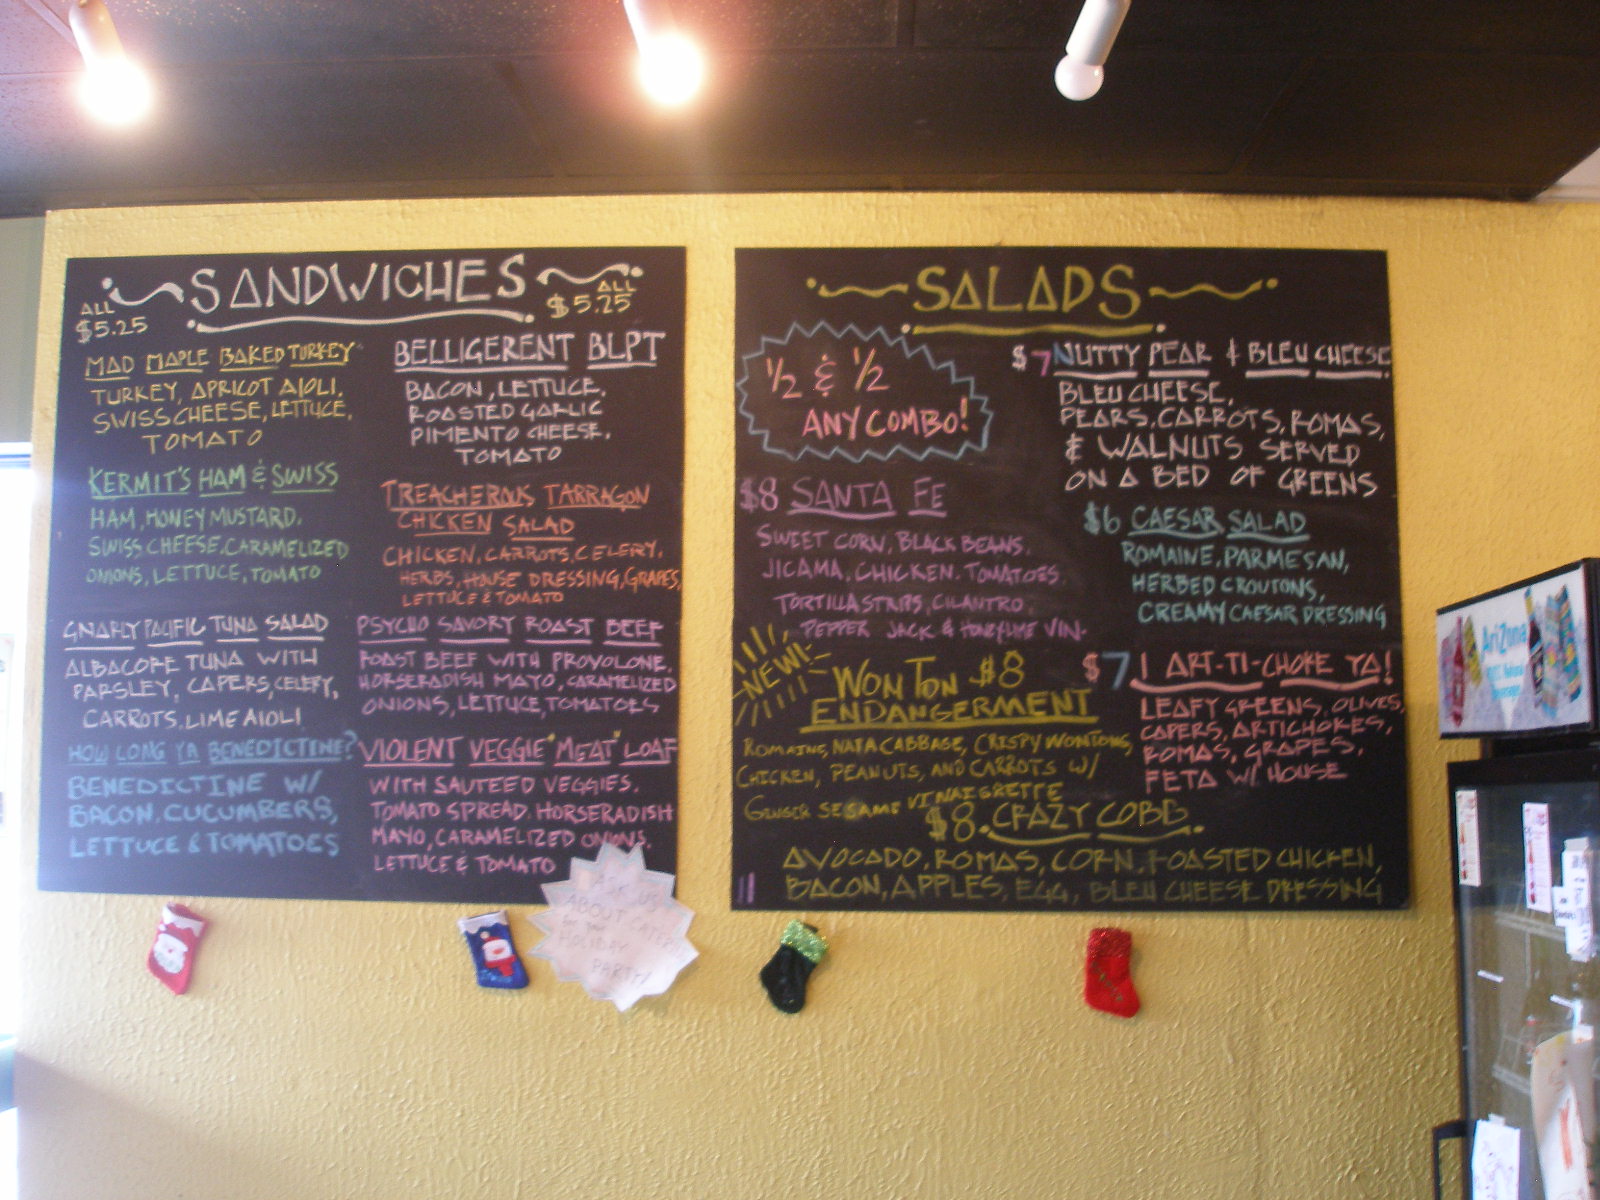 SANDWICHES
ALL
$5.25
ALL
$5.25
MAD MAPLE BAKED TURKEY
TURKEY, APRICOT AIOLI,
SWISS CHEESE, LETTUCE,
TOMATO
KERMIT'S HAM & SWISS
HAM, HONEY MUSTARD,
SWISS CHEESE, CARAMELIZED
ONIONS, LETTUCE, TOMATO
GNARLY PACIFIC TUNA SALAD
ALBACORE TUNA WITH
PARSLEY, CAPERS, CELERY,
CARROTS, LIME AIOLI
HOW LONG YA BENEDICTINE?
BENEDICTINE W/
BACON, CUCUMBERS,
LETTUCE & TOMATOES
BELLIGERENT BLPT
BACON, LETTUCE,
ROASTED GARLIC
PIMENTO CHEESE,
TOMATO
TREACHEROUS TARRAGON
CHICKEN SALAD
CHICKEN, CARROTS, CELERY,
HERBS, HOUSE DRESSING, GRAPES,
LETTUCE & TOMATO
PSYCHO SAVORY ROAST BEEF
ROAST BEEF WITH PROVOLONE,
HORSERADISH MAYO, CARAMELIZED
ONIONS, LETTUCE, TOMATOES
VIOLENT VEGGIE "MEAT" LOAF
WITH SAUTEED VEGGIES,
TOMATO SPREAD, HORSERADISH
MAYO, CARAMELIZED ONIONS,
LETTUCE & TOMATO
ASK US
ABOUT CATERING
for your
HOLIDAY
PARTY!
SALADS
1/2 & 1/2
ANY COMBO!
$8 SANTA FE
SWEET CORN, BLACK BEANS,
JICAMA, CHICKEN, TOMATOES
TORTILLA STRIPS, CILANTRO,
PEPPER JACK & HONEY LIME VIN.
NEW!
WON TON $8
ENDANGERMENT
ROMAINE, NAPA CABBAGE, CRISPY WONTONS,
CHICKEN, PEANUTS, AND CARROTS W/
GINGER SESAME VINAIGRETTE
$7 NUTTY PEAR & BLEU CHEESE
BLEU CHEESE,
PEARS, CARROTS, ROMAS,
& WALNUTS SERVED
ON A BED OF GREENS
$6 CAESAR SALAD
ROMAINE, PARMESAN,
HERBED CROUTONS,
CREAMY CAESAR DRESSING
$7 I ART-TI-CHOKE YA!
LEAFY GREENS, OLIVES,
CAPERS, ARTICHOKES,
ROMAS, GRAPES,
FETA W/ HOUSE
$8 CRAZY COBB
AVOCADO, ROMAS, CORN, ROASTED CHICKEN,
BACON, APPLES, EGG, BLEU CHEESE DRESSING
AriZona